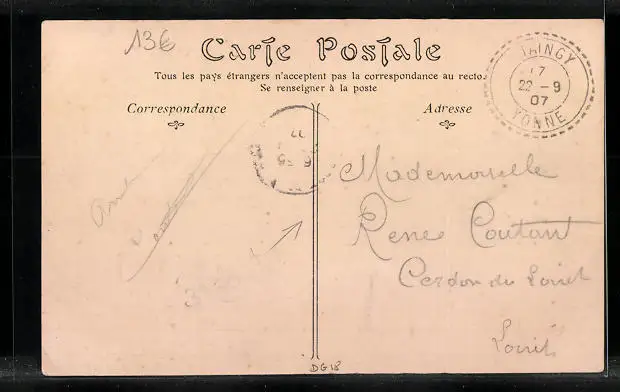 13€
Carte Postale
Tous les pays étrangers n'acceptent pas la correspondance au recto.
Se renseigner à la poste
Correspondance
Adresse
TAINGY
17
22 - 9
07
YONNE
Mademoiselle
Rene Coutant
Cerdon du Loiret
Loiret
DG18